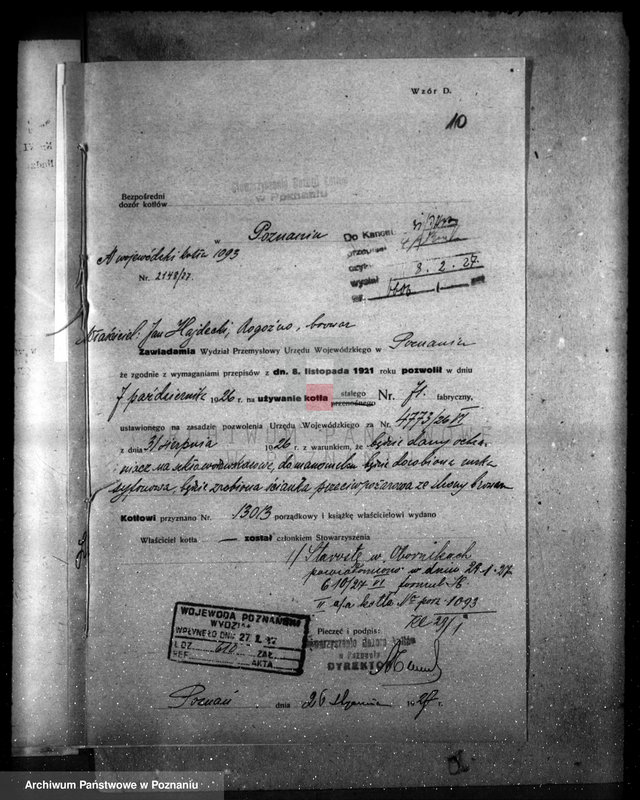 Wzór D.
10
Bezpośredni
dozór kotłów
Stowarzyszenie Dozoru Kotłów
w Poznaniu
w Poznaniu
Do Kancel.
przepisał
wysłał 3. 2. 27.
A wojewódzki kotła 1093
Nr. 2148/27.
Właściciel: Jan Hajdecki, Rogoźno, browar
Zawiadamia Wydział Przemysłowy Urzędu Wojewódzkiego w Poznaniu
że zgodnie z wymaganiami przepisów z dn. 8. listopada 1921 roku pozwolił w dniu
7 października 1926 r. na używanie kotła stałego przenośnego Nr. 71. fabryczny,
ustawionego na zasadzie pozwolenia Urzędu Wojewódzkiego za Nr. 4773/26 VI
z dnia 31 sierpnia 1926 r. z warunkiem, że będzie dany ochra-
niacz na szkła wodowskazowe, do manometru będzie dorobiona rurka
syfonowa, będzie zrobiona ścianka przeciwpożarowa ze strony browaru
Kotłowi przyznano Nr. 13013 porządkowy i książkę właścicielowi wydano
Właściciel kotła — został członkiem Stowarzyszenia
1/ Starostę w Obornikach
powiadomiono w dniu 29.1.27.
610/27 VI formul. K.
II a/a kotła No porz. 1093
29/1
WOJEWODA POZNAŃSKI
WYDZIAŁ
WPŁYNĘŁO DNIA 27.1.27
L.DZ. 610 ZAŁ.
REF. AKTA
Pieczęć i podpis:
Stowarzyszenie dozoru kotłów
w Poznaniu
DYREKTOR
Poznań dnia 26 stycznia 1927 r.
Archiwum Państwowe w Poznaniu